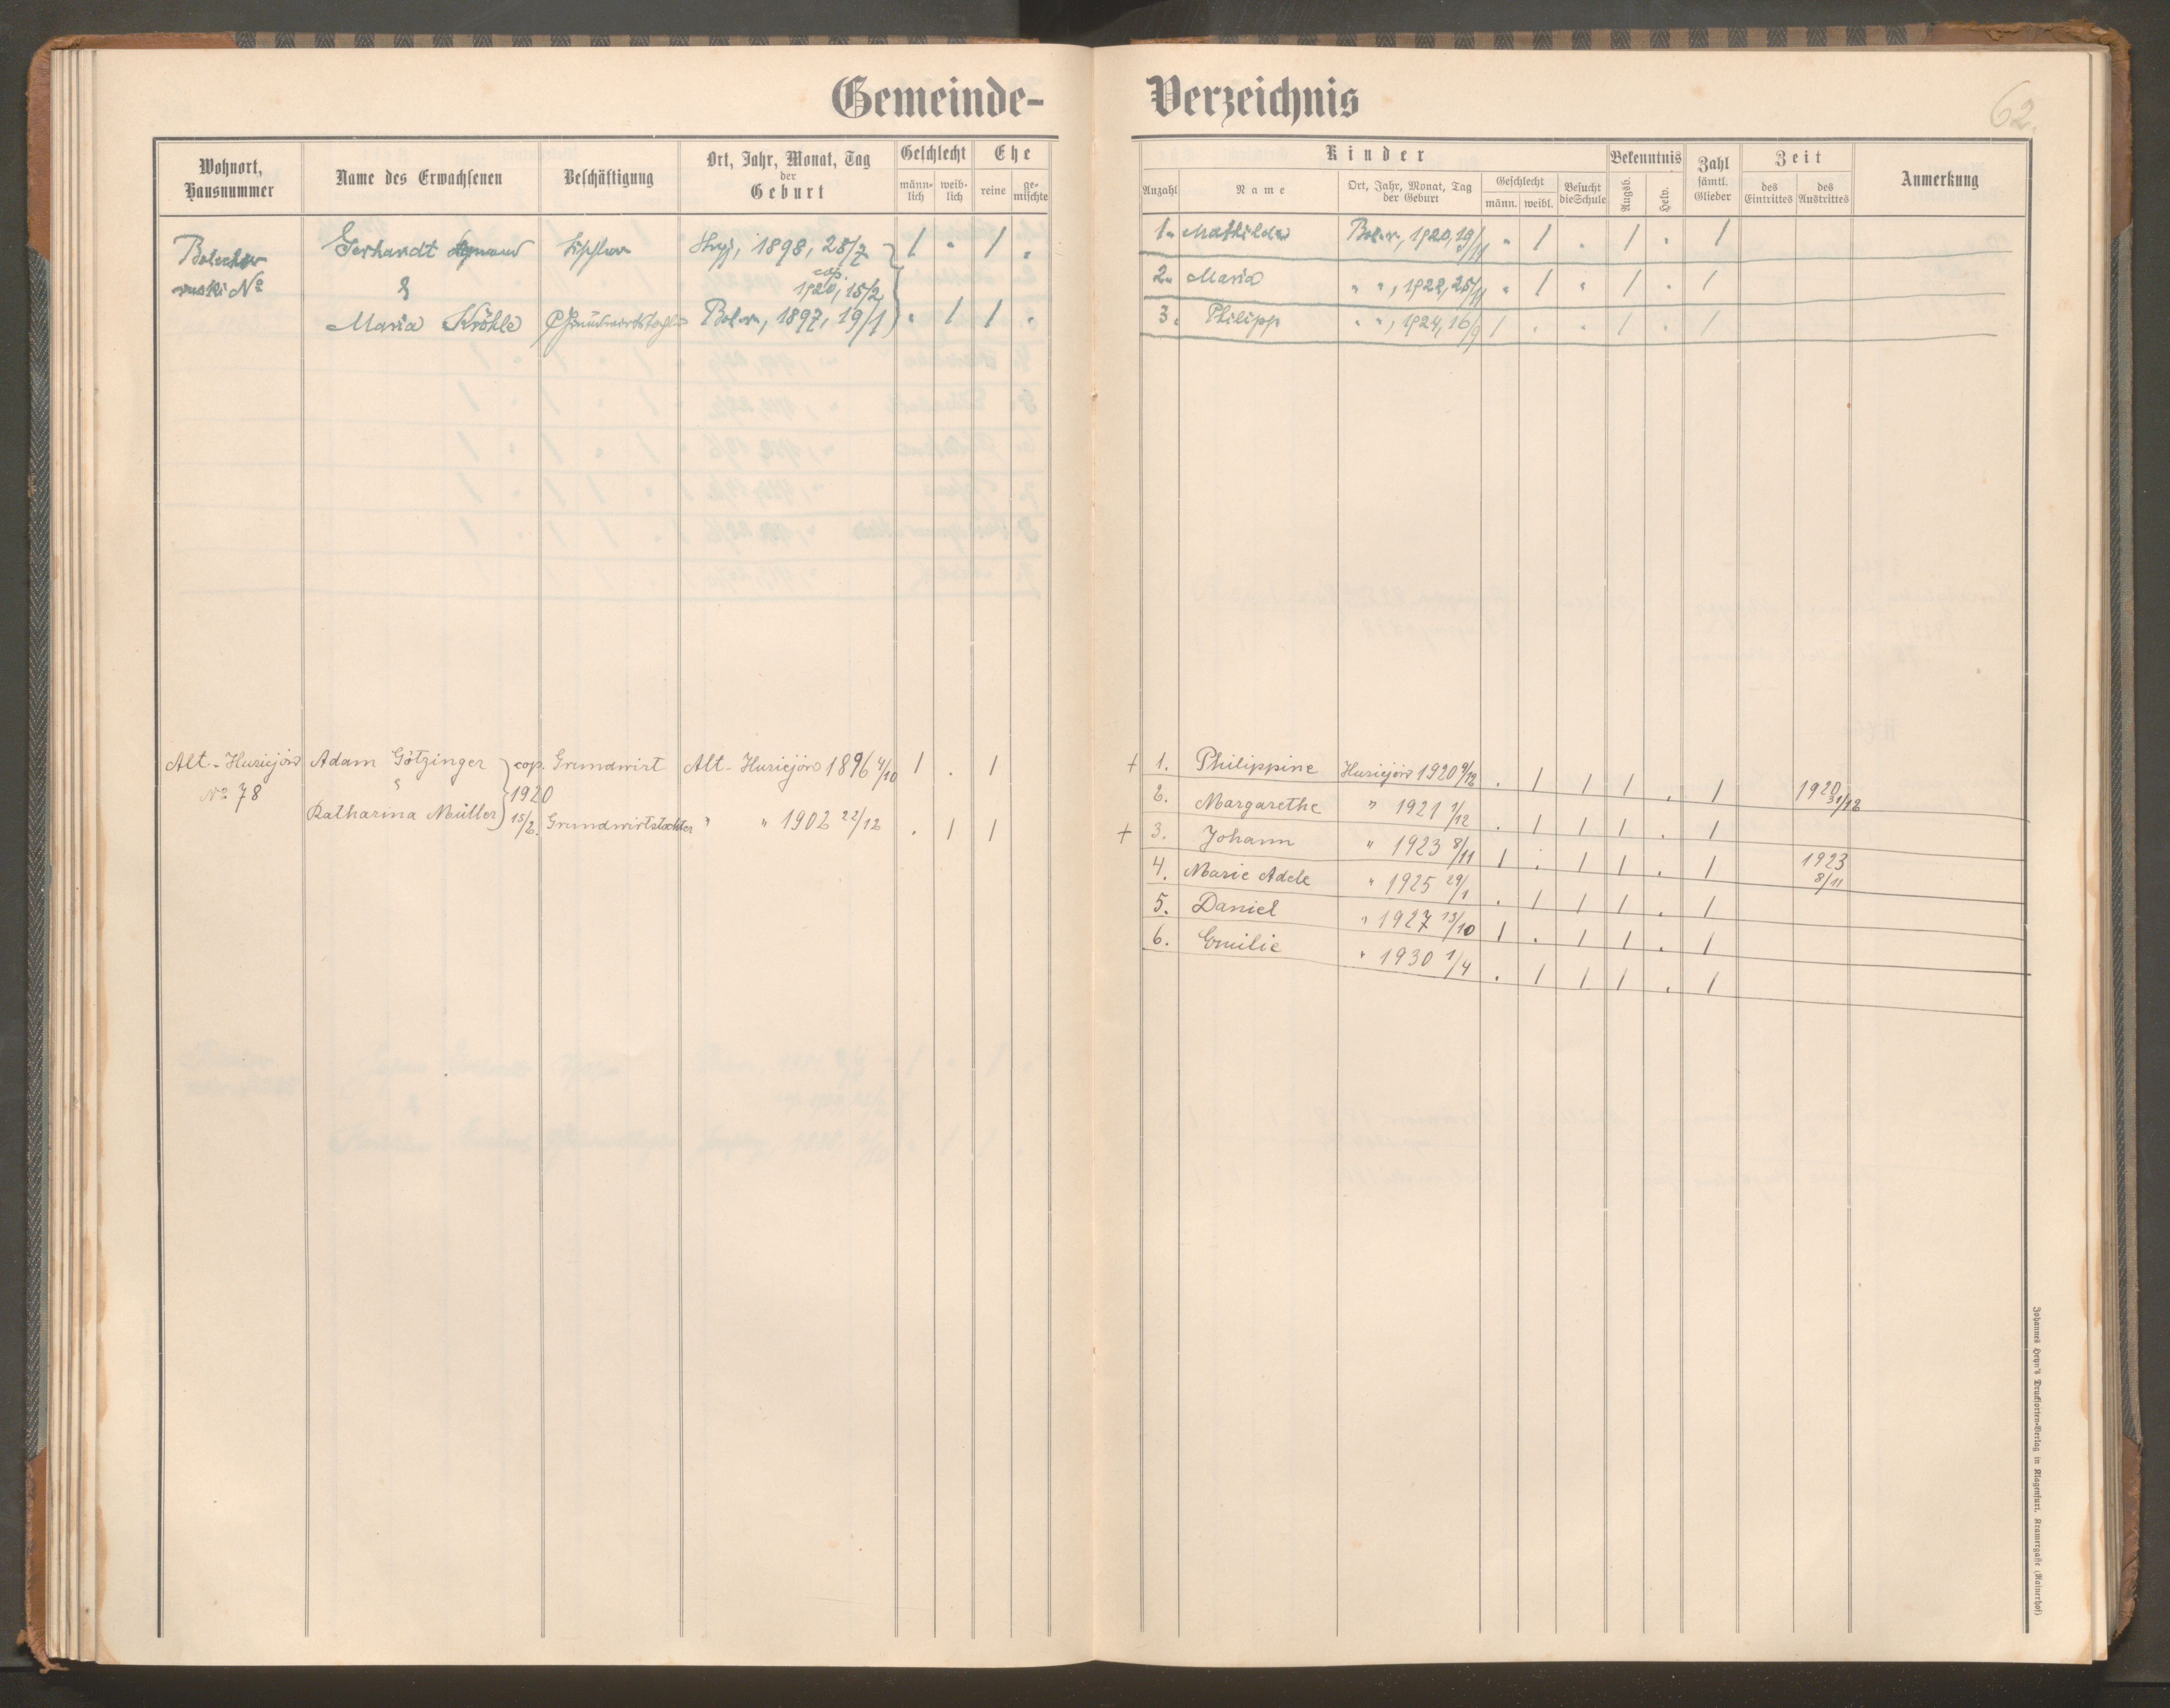 Gemeinde-Verzeichnis
62.
Wohnort, Hausnummer
Name des Erwachsenen
Beschäftigung
Ort, Jahr, Monat, Tag der Geburt
Geschlecht
männlich weiblich
Ehe
reine gemischte
Kinder
Anzahl
Name
Ort, Jahr, Monat, Tag der Geburt
Geschlecht
männ. weibl.
Besucht die Schule
Bekenntnis
Augsb. Helv.
Zahl sämtl. Glieder
Zeit
des Eintrittes des Austrittes
Anmerkung
Gerhardt Stryj, 1898, 28/7 1 . 1 .
ruski No & cop. 1920, 15/2
Maria Kröhle Bol. r., 1897, 19/1 . 1 1 .
1. Mathilda Bol. r., 1920, 19/11 . 1 . 1 . 1
2. Maria " ", 1922, 25/11 . 1 . 1 . 1
3. Philipp " ", 1924, 16/9 1 . . 1 . 1
Alt-Husiejów Adam Götzinger cop. Grundwirt Alt-Husiejów 1896 4/10 1 . 1
No 78 & 1920
Katharina Müller 15/2. Grundwirtstochter " " 1902 22/12 . 1 1
+ 1. Philippine Husiejów 1920 9/12 . 1 1 1 . 1 1920 31/12
2. Margarethe " 1921 1/12 . 1 1 1 . 1
+ 3. Johann " 1923 8/11 1 . 1 1 . 1 1923 8/11
4. Marie Adele " 1925 29/1 . 1 1 1 . 1
5. Daniel " 1927 13/10 1 . 1 1 . 1
6. Emilie " 1930 1/4 . 1 1 1 . 1
Johannes Heyn's Drucksorten-Verlag in Klagenfurt, Kramergasse (Rainerhof)